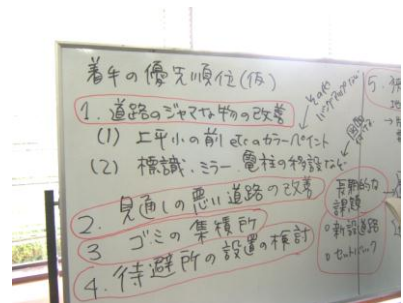 着手の優先順位(仮)
1. 道路のジャマな物の改善
(1) 上平小の前 etcのカラーペイント
(2) 標識、ミラー、電柱の移設など
2. 見通しの悪い道路の改善
3 ゴミの集積所
4. 待避所の設置の検討
その他
長期的な
課題
○新設道路
○セットバック
5.